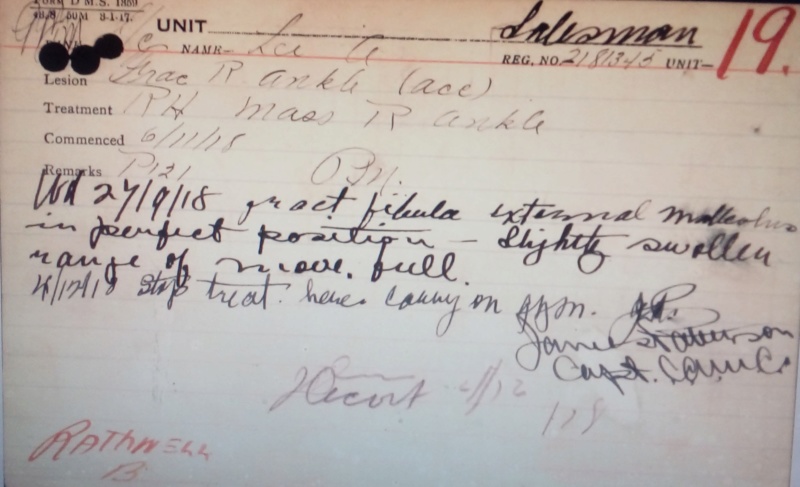 FORM D M.S. 1359
UNIT Salesman 19.
NAME- Lee
REG. NO. 2181345 UNIT-
Lesion Frac R Ankle (acc)
Treatment RH Mass R ankle
Commenced 6/11/18
Remarks P121
Wd 27/9/18 fract fibula external malleolus
in perfect position - slightly swollen
range of move. full.
4/12/18 Stop treat. here. Carry on gym.
James
Capt. C.A.M.C.
4/12
RATHWELL
B